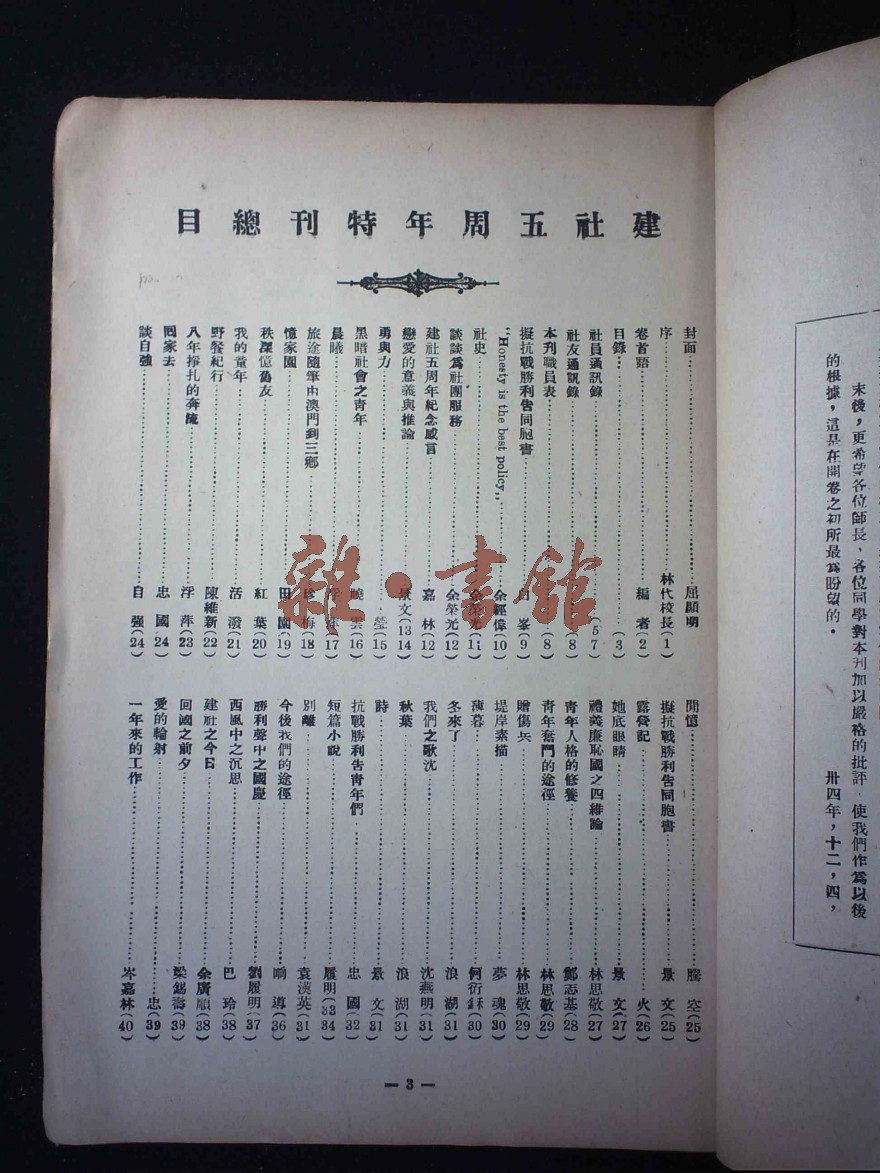 末後，更希望各位師長，各位同學對本刊加以嚴格的批評，使我們作爲以後
的根據，這是在開卷之初所最爲盼望的。
卅四年，十二，四，
建社五周年特刊總目
封面 屈顯明
序 林代校長(1)
卷首語 編者(2)
目錄 (3)
社員通訊錄 (5 7)
社友通訊錄 (8)
本刊職員表 (8)
擬抗戰勝利告同胞書 峯(9)
"Honesty is the best policy" 余經偉(10)
社史 余榮光(11)
談談爲社團服務 余榮光(12)
建社五周年紀念感言 嘉林(12)
戀愛的意義與推論 景文(13 14)
勇與力 瑩(15)
黑暗社會之青年 曉雲(16)
晨曦 (17)
旅途隨筆由澳門到三鄉 珍梅(18)
憶家園 田園(19)
秩深憶爲友 紅葉(20)
我的童年 活潑(21)
野餐紀行 陳維新(22)
八年掙扎的奔流 浮萍(23)
囘家去 忠國(24)
談自強 自強(24)
閒憶 騰空(25)
擬抗戰勝利告同胞書 景文(25)
露營記 火(26)
她底眼睛 景文(27)
禮義廉恥國之四維論 林思敬(27)
青年人格的修養 鄭志基(28)
青年奮鬥的途徑 林思敬(29)
贈傷兵 林思敬(29)
堤岸素描 夢魂(30)
薄暮 何衍穌(30)
冬來了 浪湖(31)
我們之歌沈 沈燕明(31)
秋葉 浪湖(31)
詩 景文(31)
抗戰勝利告青年們 忠國(32)
短篇小說 履明(33 34)
別離 袁漢英(31)
今後我們的途徑 嚮導(36)
勝利聲中之國慶 劉履明(37)
西風中之沉思 巴玲(38)
建社之今日 余廣順(38)
回國之前夕 梁錫壽(39)
愛的輪射 忠(39)
一年來的工作 岑嘉林(40)
— 3 —
雜·書館